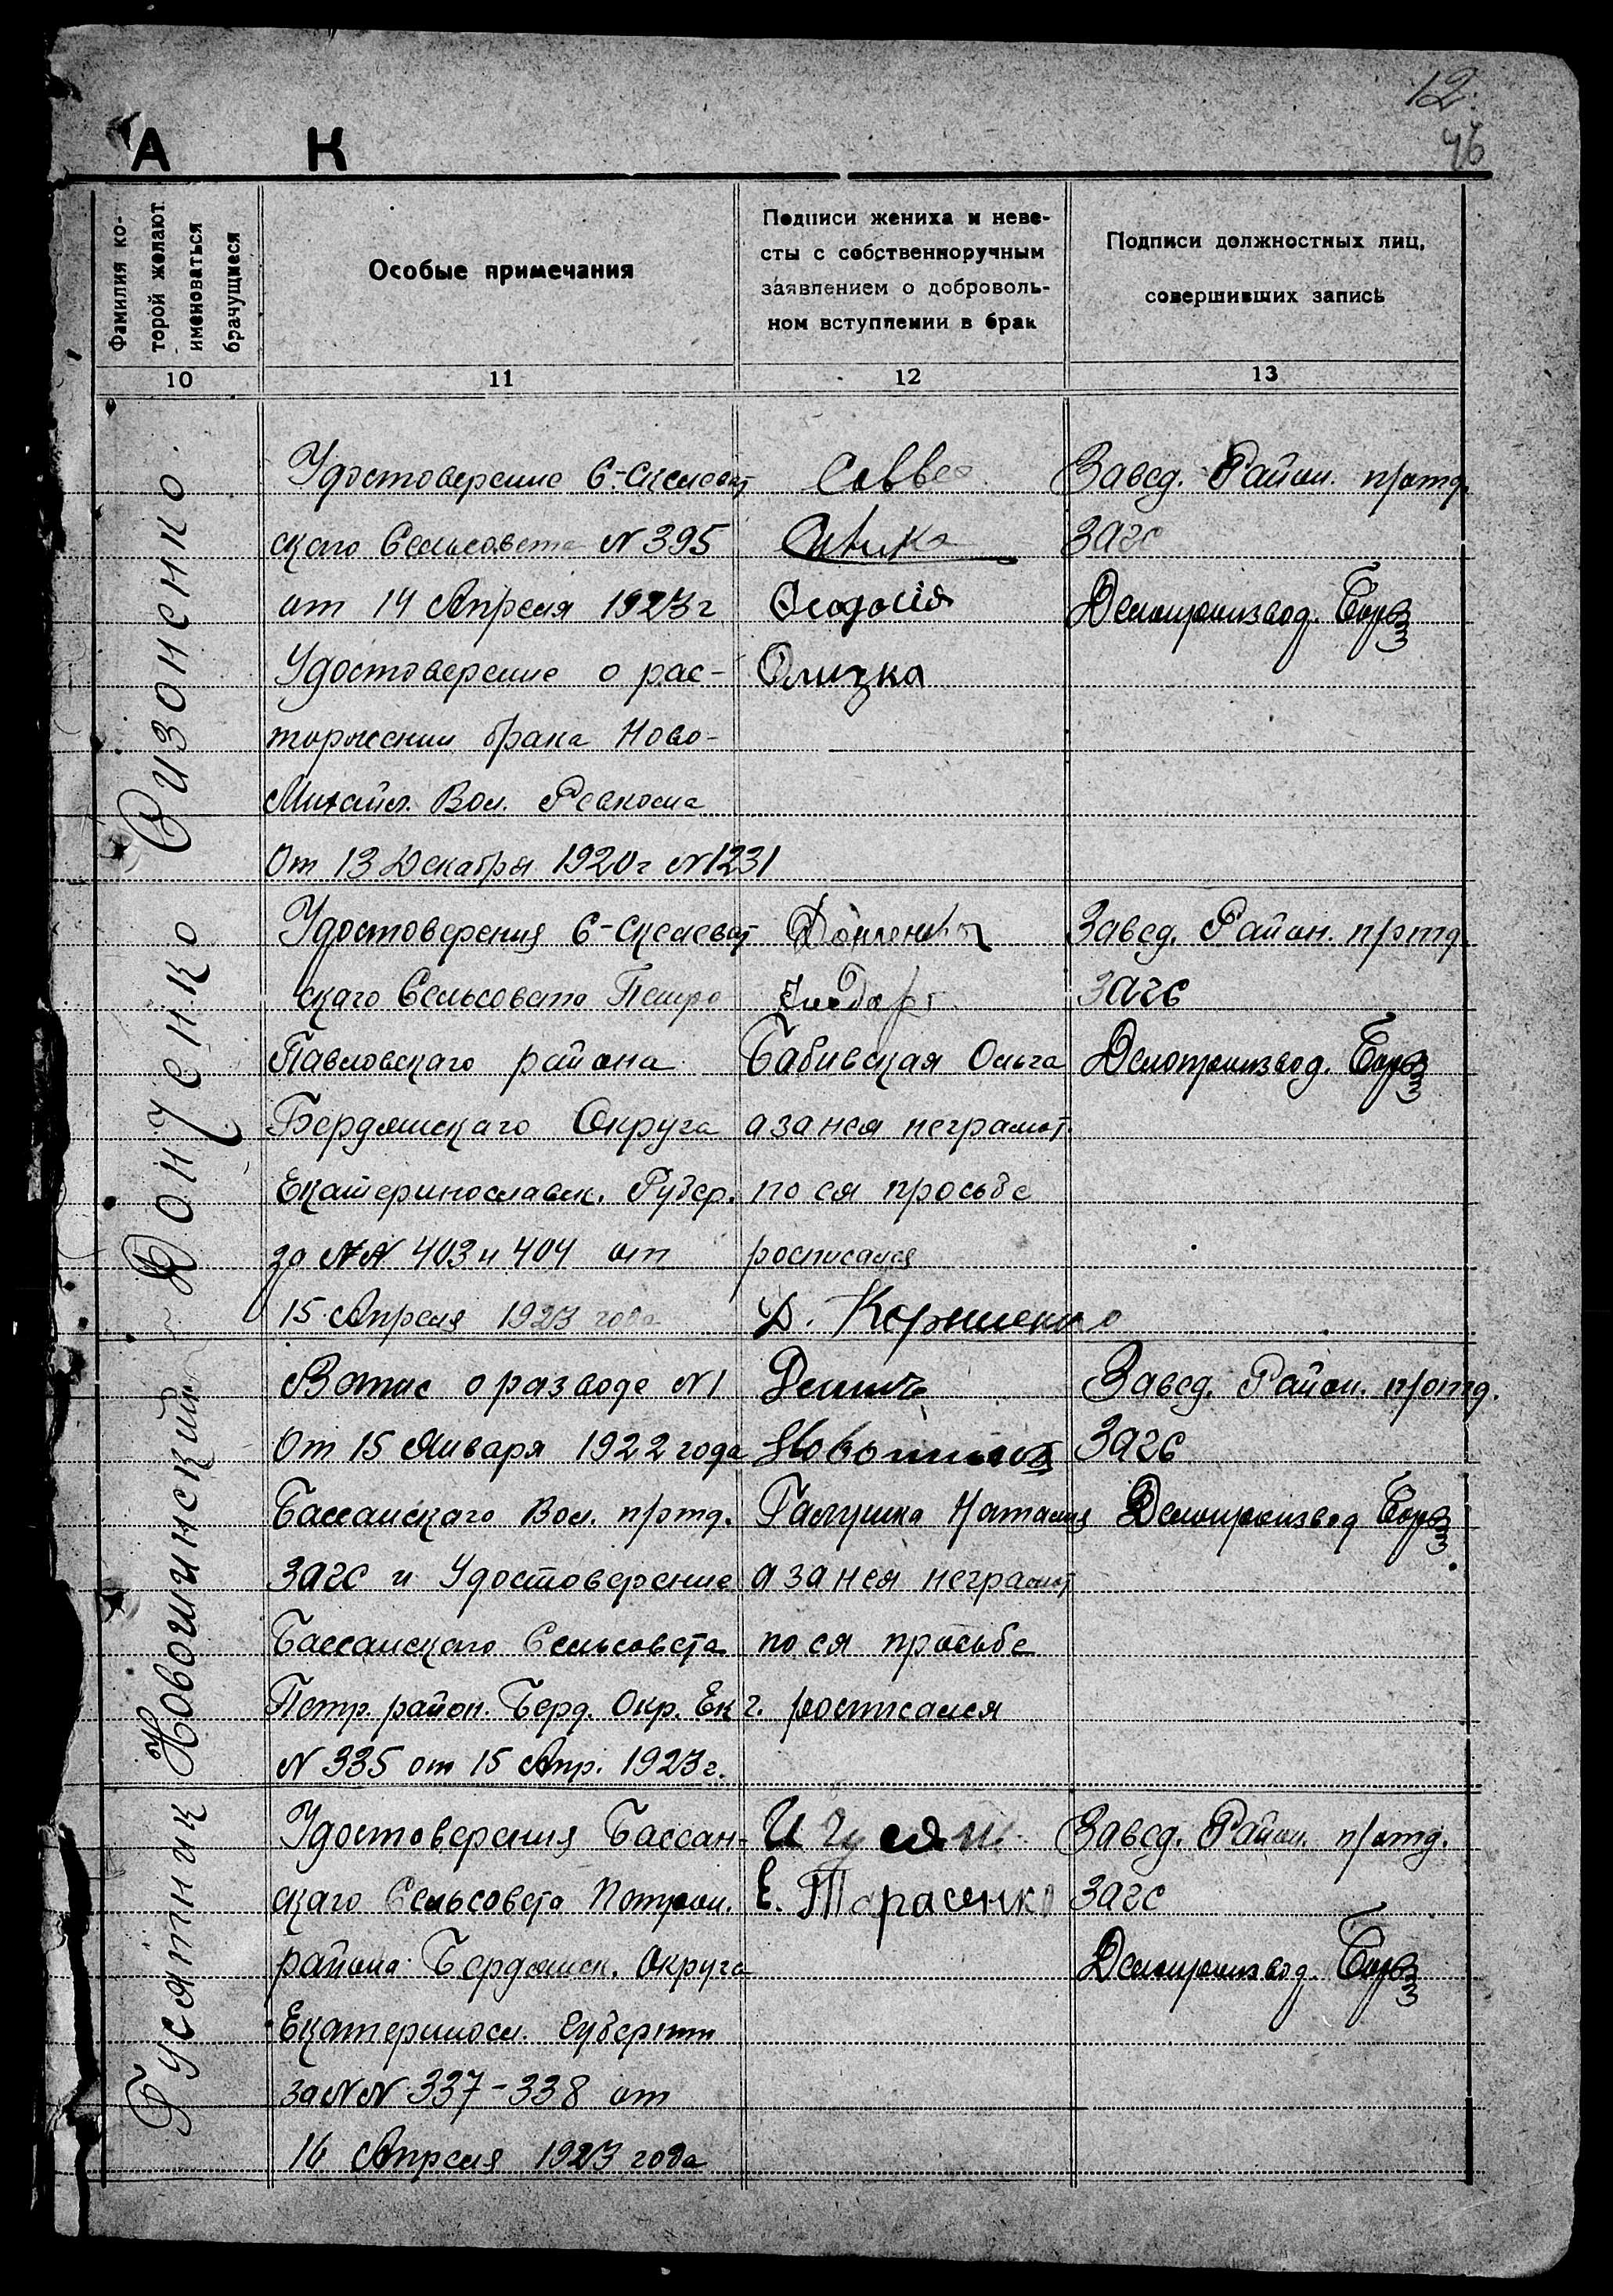 12.
46
А К
Фамилия ко-
торой желают
именоваться
брачущиеся
Особые примечания
Подписи жениха и неве-
сты с собственноручным
заявлением о доброволь-
ном вступлении в брак
Подписи должностных лиц,
совершивших запись
10
11
12
13
Сизоненко
Удостоверение С-Скелеват
ского Сельсовета N 395
от 14 Апреля 1923 г
Удостоверение о рас-
торжении брака Ново-
Михайл. Вол. Ревкома
От 13 Декабря 1920 г N 1231
Савва
Феодосія
Олизка
Завед. Район. п/отд.
загс
Делопроизвод.
Донченко
Удостоверения С-Скелеват
скаго Сельсовета Петро
Павловскаго района
Бердянскаго Округа
Екатеринославск. Губер.
за NN 403 и 404 от
15 Апреля 1923 года
Бабивская Ольга
а за нея неграмот.
по ея просьбе
росписался
Д. Корниенко
Завед. Район. п/отд.
загс
Делопроизвод.
Новошинский
о разводе N 1
От 15 Января 1922 года
Бассанскаго Вол. п/отд.
загс и Удостоверение
Бассанскаго Сельсовета
Петр. район. Берд. Окр. Ек г.
N 335 от 15 Апр. 1923 г.
Галушка Наталия
а за нея неграмот
по ея просьбе
росписался
Завед. Район. п/отд.
загс
Делопроизвод
Гусятник
Удостоверения Бассан-
скаго Сельсовета
района Бердянск. Округа
Екатериносл. Губернии
за NN 337-338 от
16 Апреля 1923 года
Е. Тарасенко
Завед. Район. п/отд.
загс
Делопроизвод.